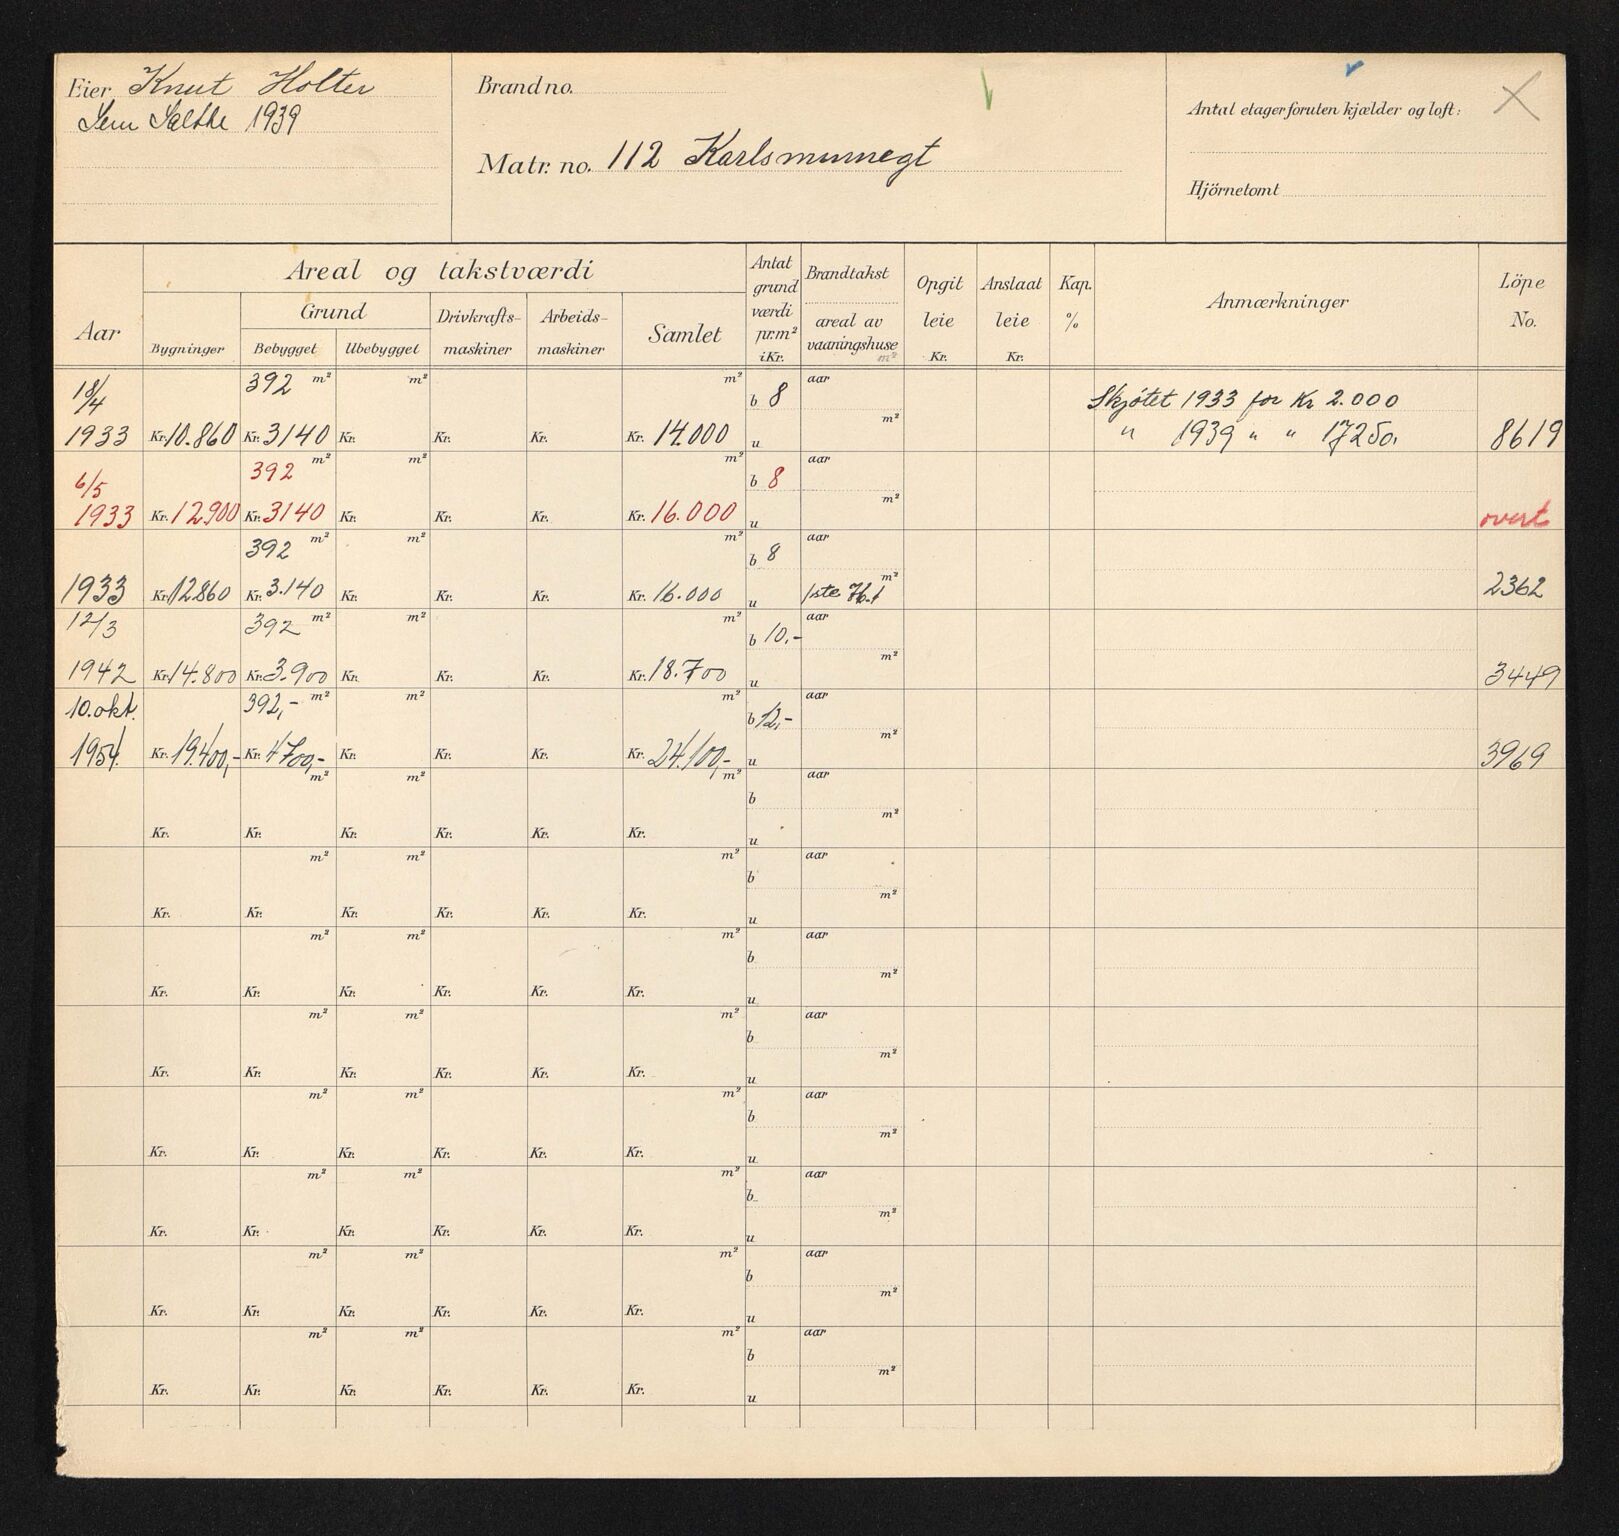 Eier Knut Holter
Sem Sælthe 1939
Brand no.
Matr. no. 112 Karlsminnegt
Antal etager foruten kjælder og loft:
Hjörnetomt
Aar
Areal og takstværdi
Grund
Bygninger
Bebygget
Ubebygget
Drivkrafts-
maskiner
Arbeids-
maskiner
Samlet
Antat
grund
værdi
pr.m²
i Kr.
Brandtakst
areal av
vaaningshuse
m²
Opgit
leie
Kr.
Anslaat
leie
Kr.
Kap.
%
Anmærkninger
Löpe
No.
18/4 392 m² m² m² b 8 aar Skjøtet 1933 for Kr 2.000
1933 Kr. 10.860 Kr. 3140 Kr. Kr. Kr. Kr. 14.000 u m² " 1939 " " 17250. 8619
6/5 392 m² m² m² b 8 aar
1933 Kr. 12.900 Kr. 3140 Kr. Kr. Kr. Kr. 16.000 u m² overt
392 m² m² m² b 8 aar
1933 Kr. 12860 Kr. 3.140 Kr. Kr. Kr. Kr. 16.000 u 1ste m² 2362
12/3 392 m² m² m² b 10,- aar
1942 Kr. 14.800 Kr. 3.900 Kr. Kr. Kr. Kr. 18.700 u m² 3449
10. okt. 392,- m² m² m² b 12,- aar
1954. Kr. 19.400,- Kr. 4700,- Kr. Kr. Kr. Kr. 24.100,- u m² 3969
m² m² m² b aar
Kr. Kr. Kr. Kr. Kr. Kr. u m²
m² m² m² b aar
Kr. Kr. Kr. Kr. Kr. Kr. u m²
m² m² m² b aar
Kr. Kr. Kr. Kr. Kr. Kr. u m²
m² m² m² b aar
Kr. Kr. Kr. Kr. Kr. Kr. u m²
m² m² m² b aar
Kr. Kr. Kr. Kr. Kr. Kr. u m²
m² m² m² b aar
Kr. Kr. Kr. Kr. Kr. Kr. u m²
m² m² m² b aar
Kr. Kr. Kr. Kr. Kr. Kr. u m²
m² m² m² b aar
Kr. Kr. Kr. Kr. Kr. Kr. u m²